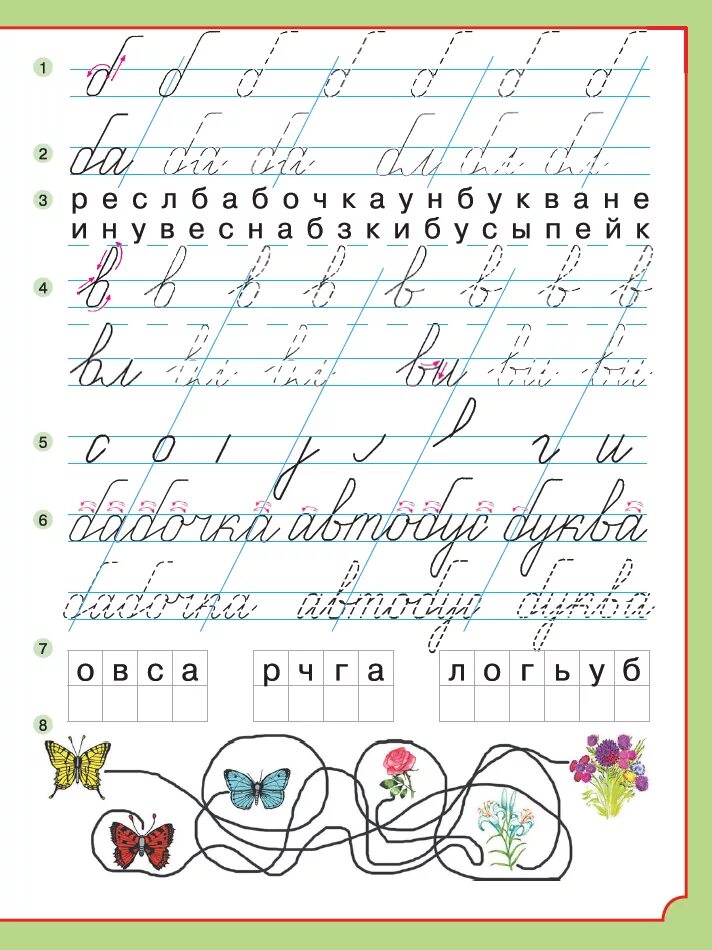 1 б б б б б б б
2 ба ба ба бл бл бл
3 реслбабочкаунбукване
инувеснабзкибусыпейк
4 в в в в в в в в
вл вл вл ви ви ви
5 с о г и
6 бабочка автобус буква
бабочка автобус буква
7 овса рчга логьуб
8